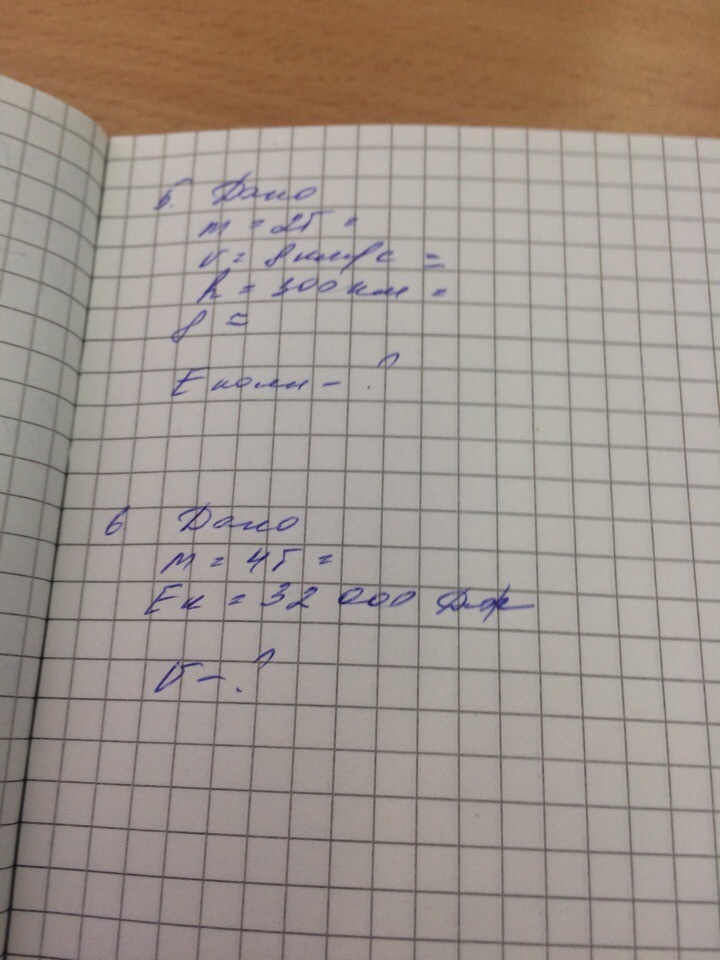 5. Дано
m = 2т =
v = 8 км/с =
h = 300 км =
g =
E полн - ?
6 Дано
m = 4т =
Eк = 32 000 Дж
v - ?